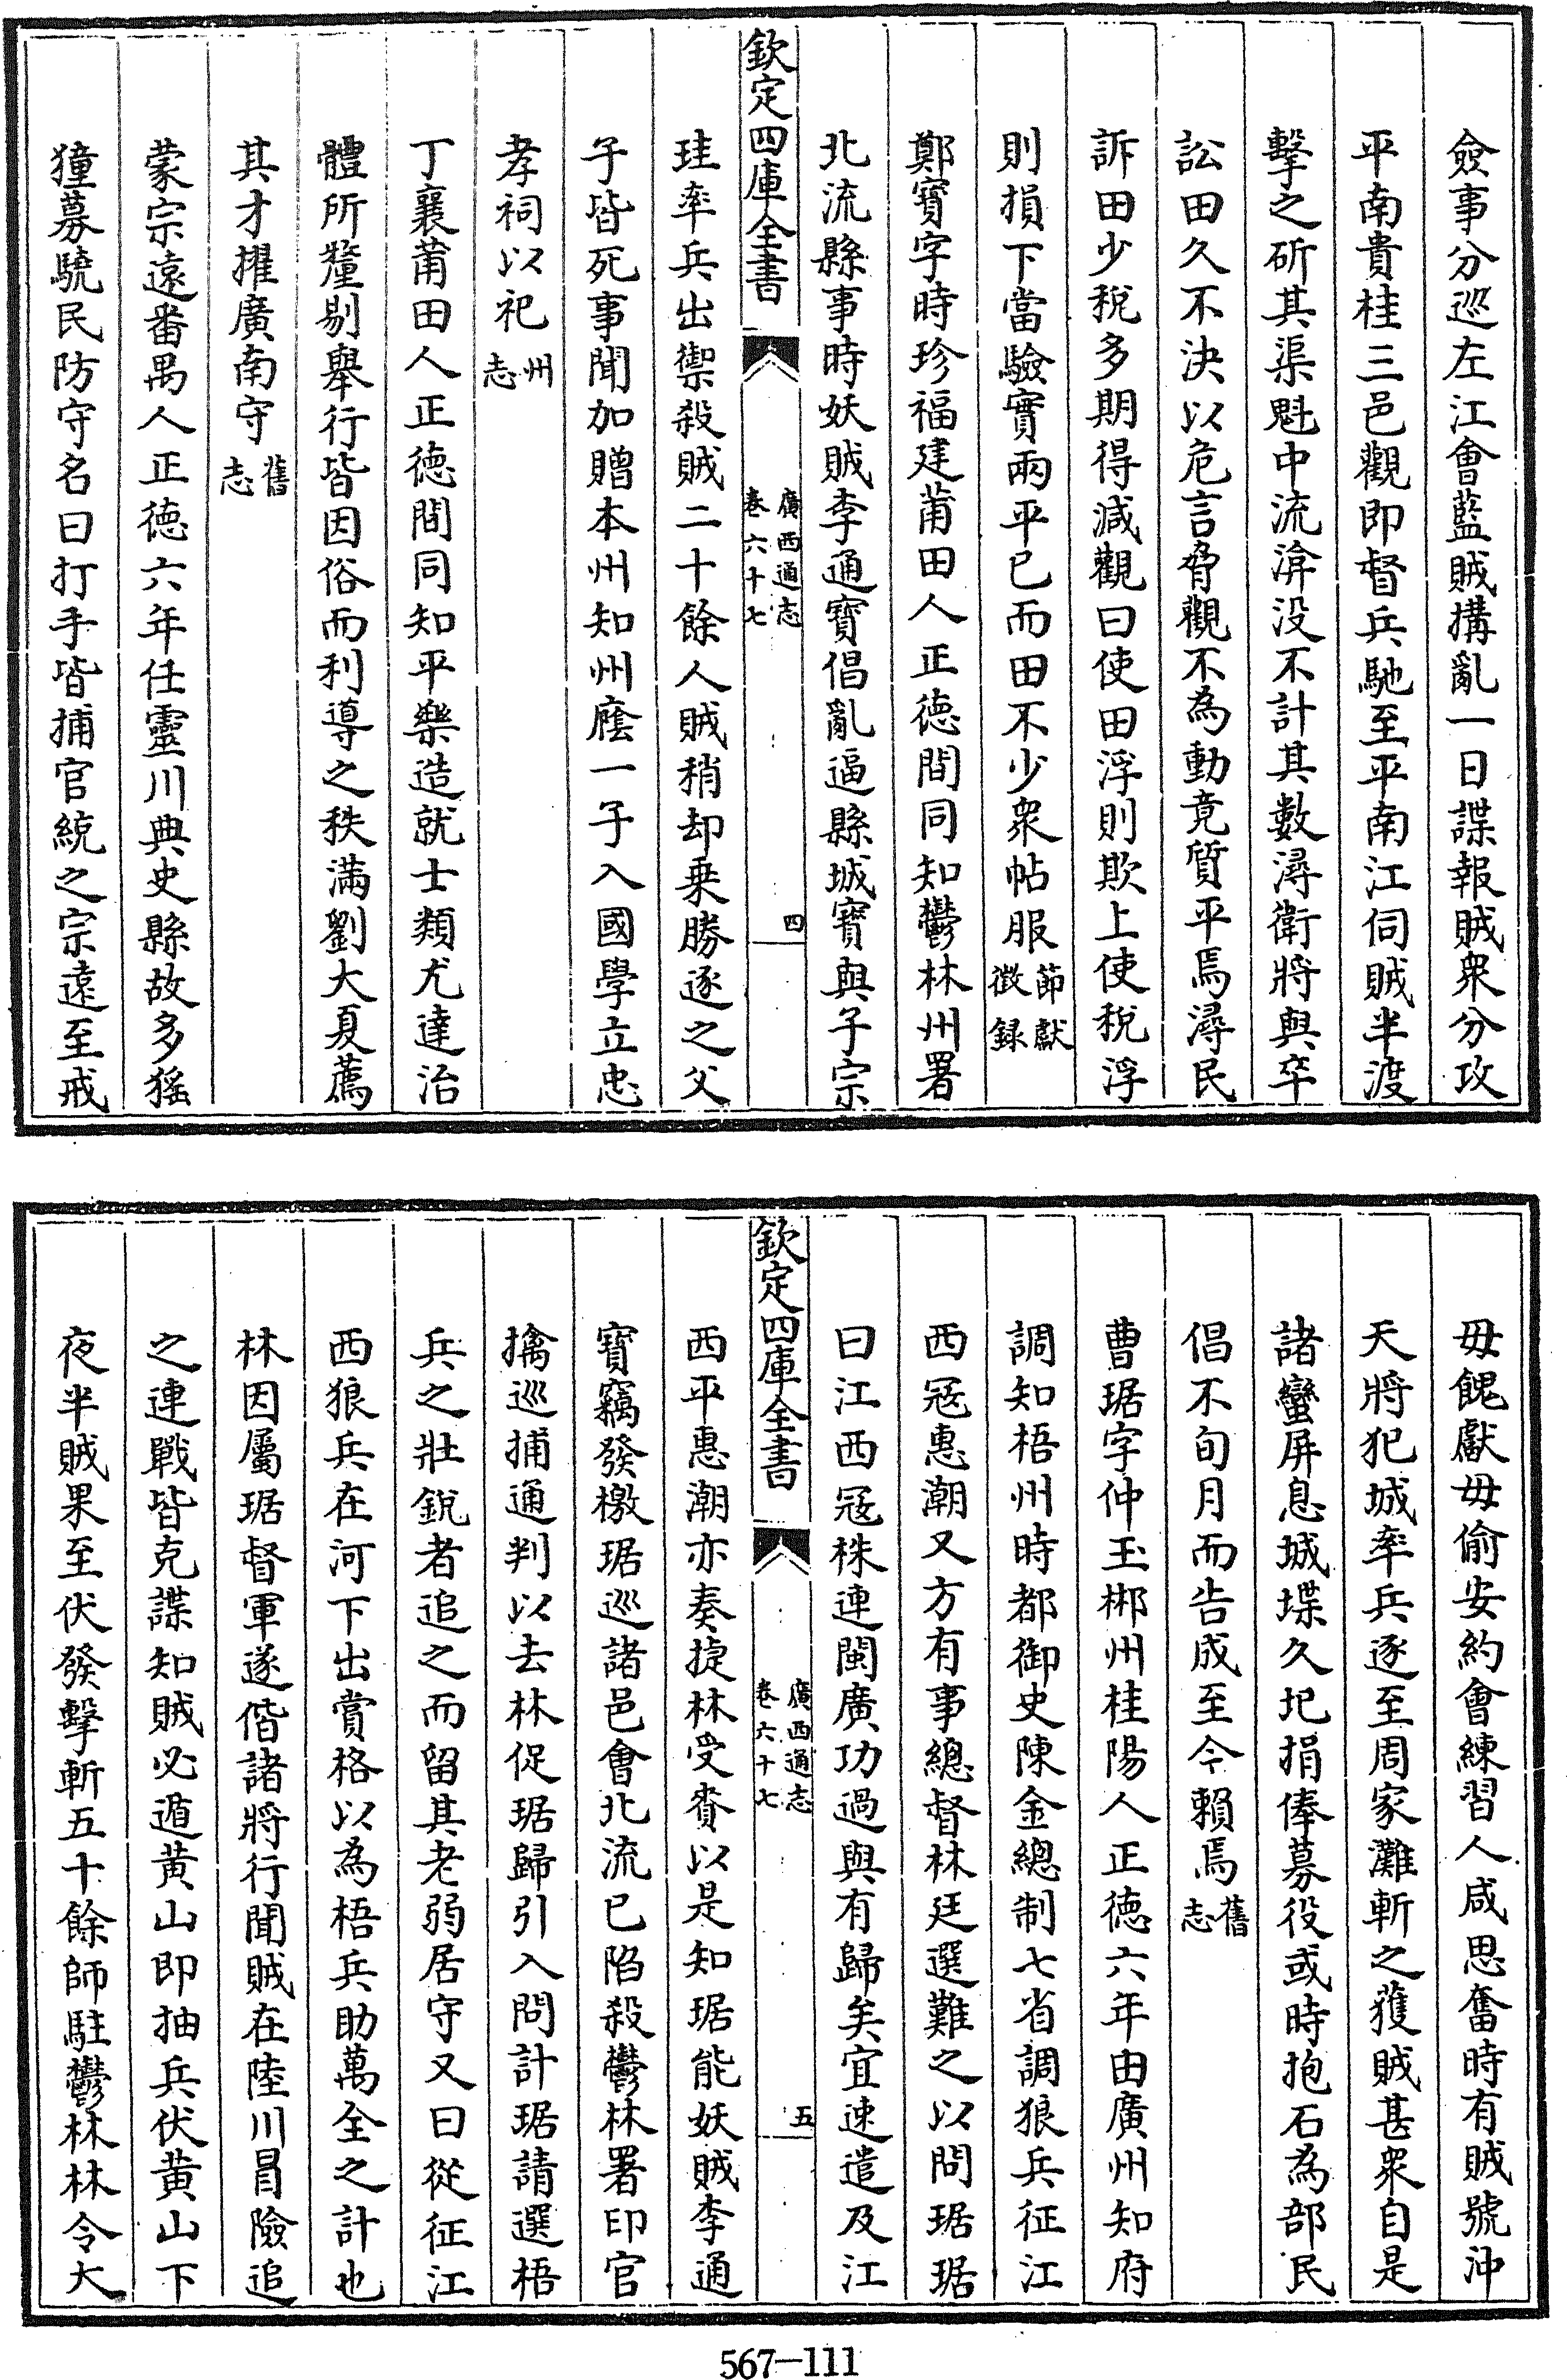 僉事分巡左江會藍賊搆亂一日諜報賊衆分攻
平南貴桂三邑觀即督兵馳至平南江伺賊半渡
擊之斫其渠魁中流渰没不計其數潯衛將與卒
訟田久不決以危言脅觀不為動竟質平焉潯民
訴田少稅多期得減觀曰使田浮則欺上使稅浮
則損下當驗實兩平已而田不少衆帖服節獻徵録
鄭寳字時珍福建莆田人正徳間同知鬱林州署
北流縣事時妖賊李通寳倡亂逼縣城寳與子宗
欽定四庫全書 廣西通志 卷六十七 四
珪率兵出禦殺賊二十餘人賊稍却乗勝逐之父
子皆死事聞加贈本州知州廕一子入國學立忠
孝祠以祀州志
丁襄莆田人正徳間同知平樂造就士類尤達治
體所釐剔舉行皆因俗而利導之秩滿劉大夏薦
其才擢廣南守舊志
蒙宗遠番禺人正徳六年任靈川典史縣故多猺
獞募驍民防守名曰打手皆捕官統之宗遠至戒
毋餽獻毋偷安約會練習人咸思奮時有賊號沖
天將犯城率兵逐至周家灘斬之獲賊甚衆自是
諸蠻屏息城堞久圮捐俸募役或時抱石為部民
倡不旬月而告成至今賴焉舊志
曹琚字仲玉郴州桂陽人正徳六年由廣州知府
調知梧州時都御史陳金總制七省調狼兵征江
西冦惠潮又方有事總督林廷選難之以問琚琚
曰江西冦株連閩廣功過與有歸矣宜速遣及江
欽定四庫全書 廣西通志 卷六十七 五
西平惠潮亦奏捷林受賚以是知琚能妖賊李通
寳竊發檄琚巡諸邑會北流已陷殺鬱林署印官
擒巡捕通判以去林促琚歸引入問計琚請選梧
兵之壯銳者追之而留其老弱居守又曰從征江
西狼兵在河下出賞格以為梧兵助萬全之計也
林因屬琚督軍遂偕諸將行聞賊在陸川冒險追
之連戰皆克諜知賊必遁黄山即抽兵伏黄山下
夜半賊果至伏發擊斬五十餘師駐鬱林林令大
567—111